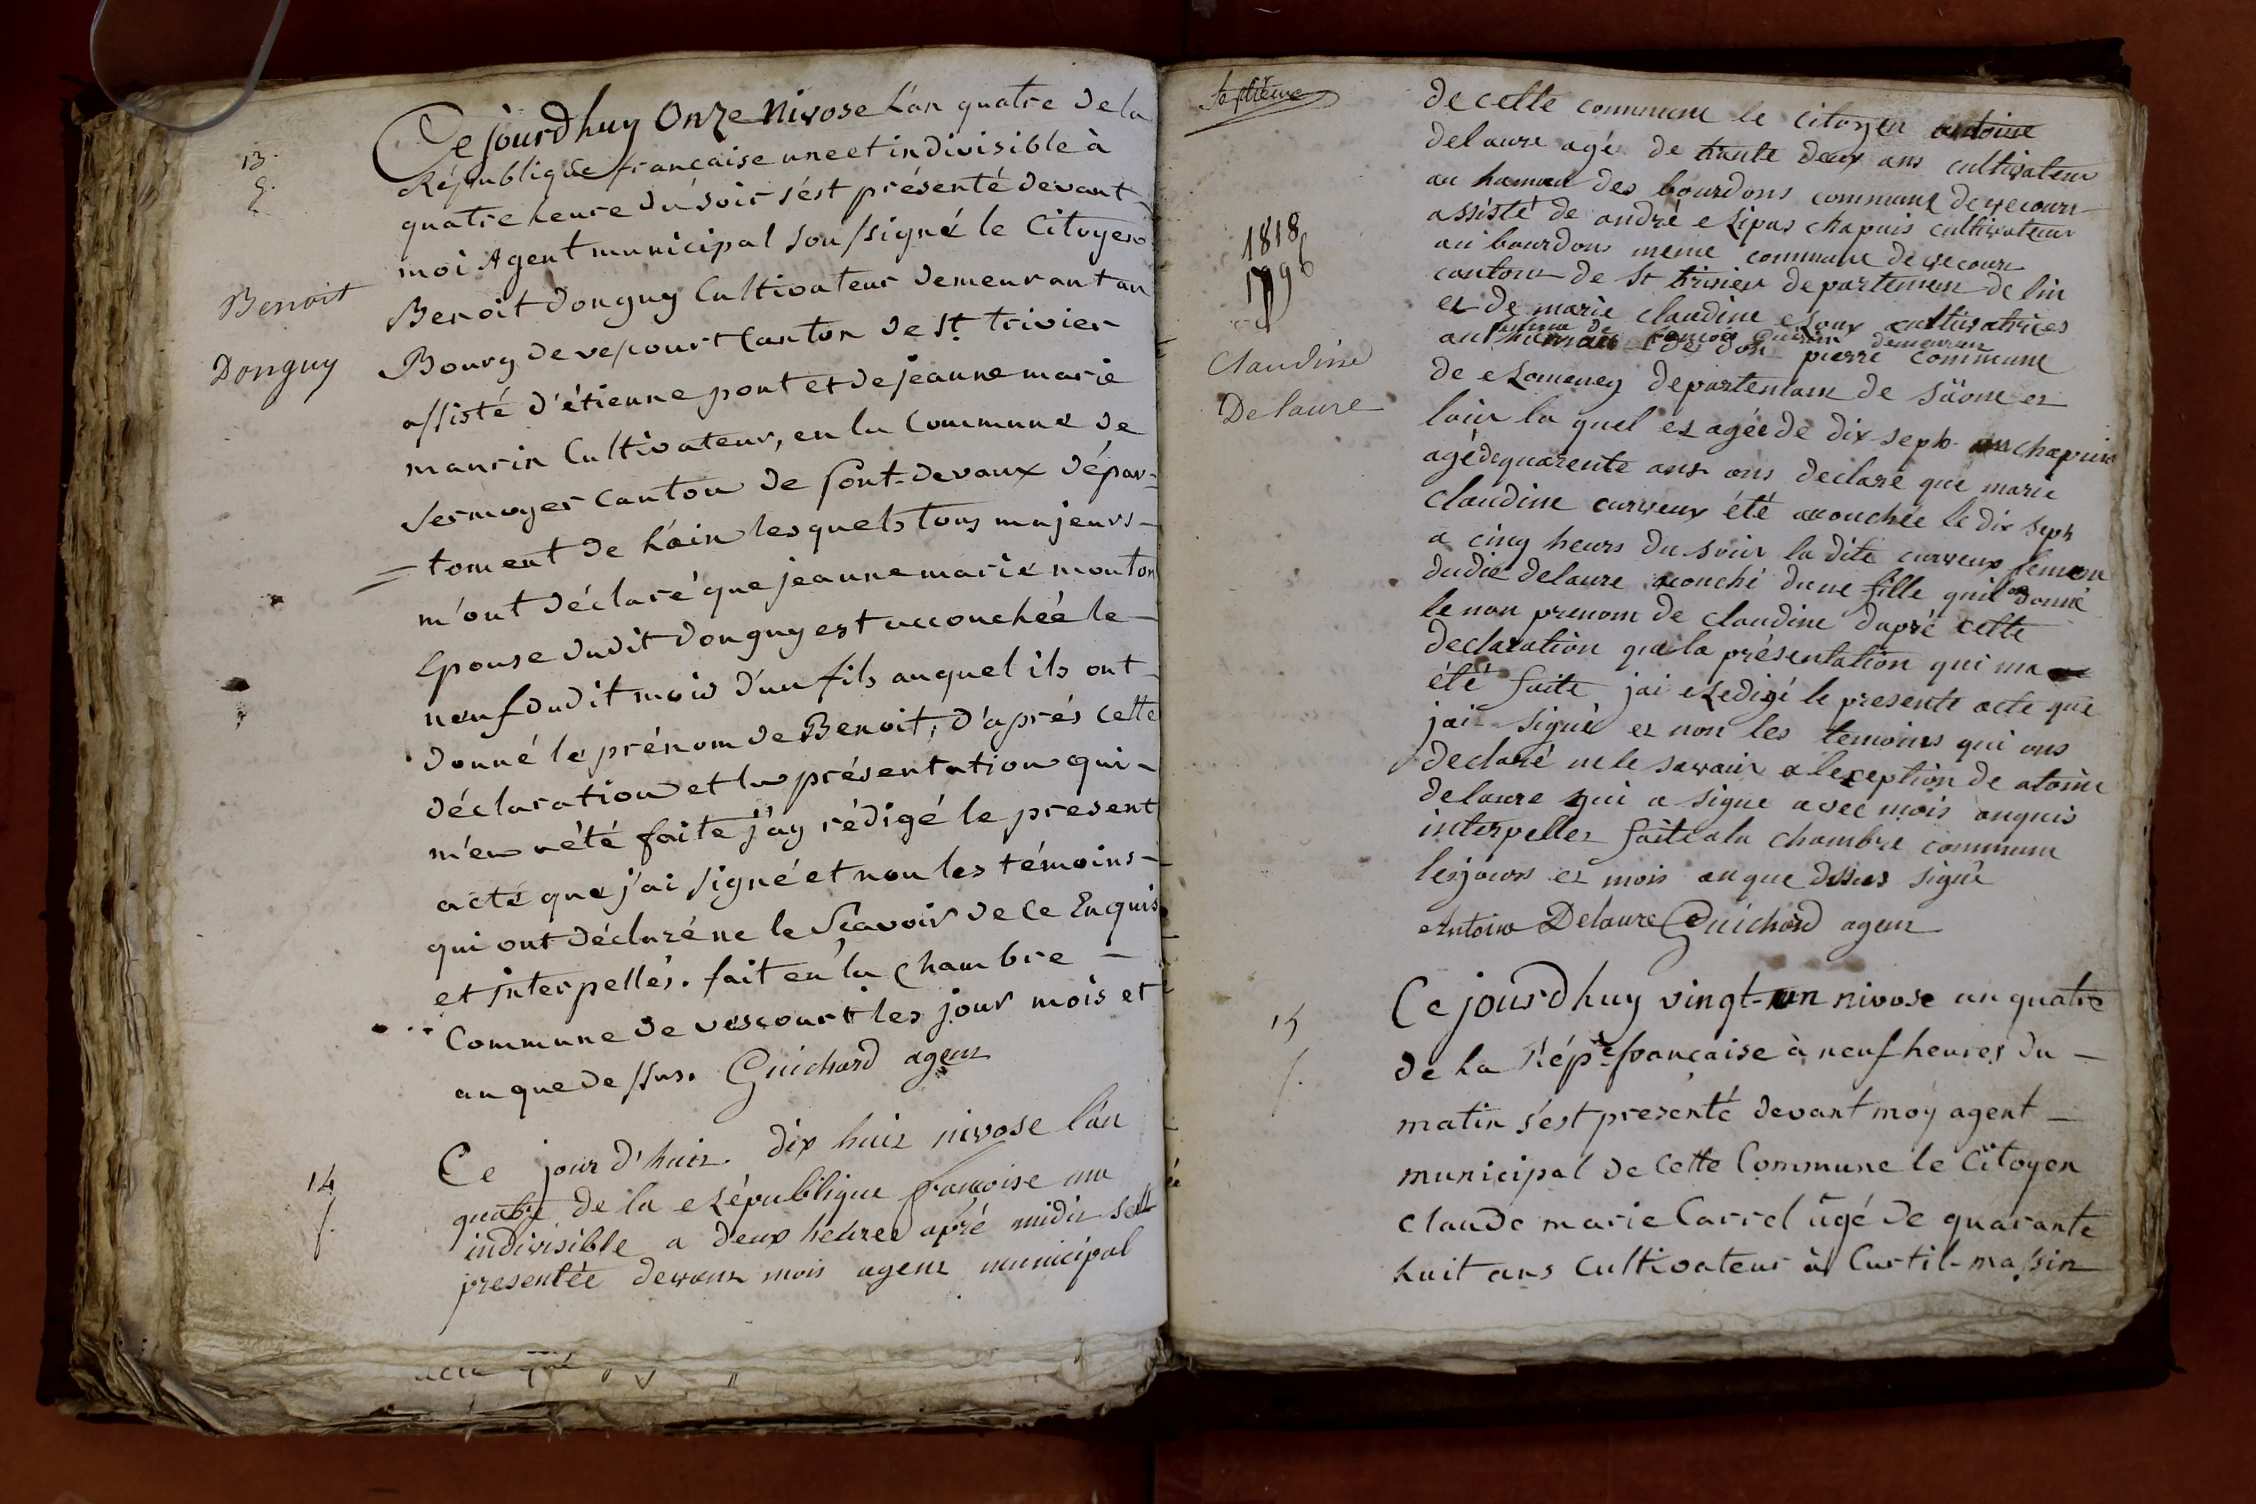 13.
g.
Benoit
Donguy
Ce jourd'huy Onze Nivose L'an quatre de la
République française une et indivisible à
quatre heure du soir s'est présenté devant
moi Agent municipal soussigné le Citoyen
Benoit Donguy Cultivateur demeurant au
Bourg de vescourt Canton de St. trivier
assisté d'étienne pont et de jeanne marie
maurin Cultivateur, en la Commune de
Sermoyer canton de Pont-devaux dépar-
=toment de L'ain lesquels tous majeurs-
m'ont déclaré que jeanne marie mouton
Epouse dudit donguy est accouchée le-
neuf dudit mois d'un fils auquel ils ont-
donné le prénom de Benoit, d'aprés cette
déclaration et la présentation qui-
m'en a été faite j'ay rédigé le present
acte que j'ai signé et non les témoins-
qui ont déclaré ne le Scavoir de ce Enquis
et interpellés. fait en la chambre -
Commune de vescourt les jour mois et
an que dessus. Guichard agent
14
f.
Ce jour d'huit dix huit nivose l'an
quatre de la République françoise une
indivisible a deux heures apré midit sest
presentée devant mois agent municipal
Septième
1818
1796
Claudine
Delaure
de cette commune le citoyen antoine
delaure agé de trante deux ans cultivateur
au hameau des bourdons commune de vecour
assisté de andré chapuis cultivateur
au bourdons meme commune de vecour
canton de St trivier departement de lin
et de marie claudine Roux cultivatrices
femme de demeurant
au pierre commune
de Romenay departement de Saone et
loir la quel et agée de dix-sept chapuis
agé de quarente ans ons declaré que marie
claudine curveux été acouchée le dix sept
a cinq heurs du soir la dite curveux femme
dudit delaure acouché dune fille quil on donné
le non prenom de claudine dapré cette
declaration que la présentation qui ma
été faite jai Redigé le presente acte que
jai signé et non les temoins qui ons
declaré ne le savoir a leception de atoine
delaure qui a signe avec mois anquis
interpeller fait a la chambre commune
les jours et mois an que dessus signé
Antoine Delaure Guichard agent
15
f.
Ce jourd'huy vingt-un nivose an quatre
de la Répe française à neuf heures du -
matin s'est presenté devant moy agent -
municipal de cette Commune le Citoyen
claude marie Carrel agé de quarante
huit ans Cultivateur à Curtil-massin